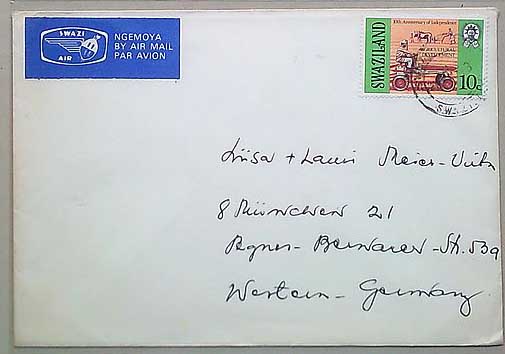 SWAZI
AIR
NGEMOYA
BY AIR MAIL
PAR AVION
10th Anniversary of Independence
AGRICULTURAL
DEVELOPMENT
SWAZILAND
10c
SWAZI
Luisa + Lauri Meier-
8 München 21
Agnes-Bernauer-Str. 53a
Western-Germany